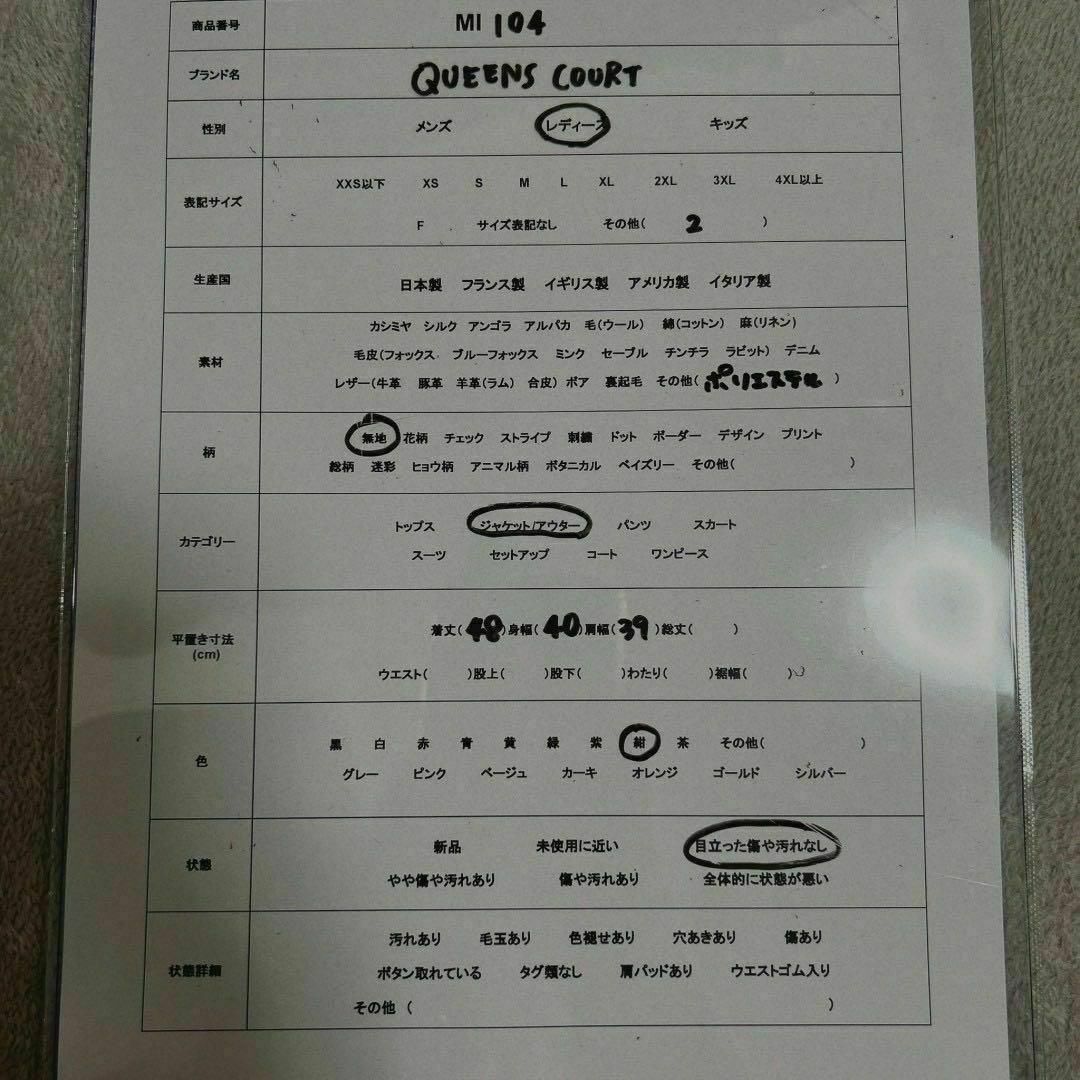 商品番号 MI 104
ブランド名 QUEENS COURT
性別 メンズ レディース キッズ
表記サイズ
XXS以下 XS S M L XL 2XL 3XL 4XL以上
F サイズ表記なし その他( 2 )
生産国 日本製 フランス製 イギリス製 アメリカ製 イタリア製
素材
カシミヤ シルク アンゴラ アルパカ 毛(ウール) 綿(コットン) 麻(リネン)
毛皮(フォックス ブルーフォックス ミンク セーブル チンチラ ラビット) デニム
レザー(牛革 豚革 羊革(ラム) 合皮) ボア 裏起毛 その他( ポリエステル )
柄
無地 花柄 チェック ストライプ 刺繍 ドット ボーダー デザイン プリント
総柄 迷彩 ヒョウ柄 アニマル柄 ボタニカル ペイズリー その他( )
カテゴリー
トップス ジャケット/アウター パンツ スカート
スーツ セットアップ コート ワンピース
平置き寸法
(cm)
着丈( 48 )身幅( 40 )肩幅( 39 )総丈( )
ウエスト( )股上( )股下( )わたり( )裾幅( )
色
黒 白 赤 青 黄 緑 紫 紺 茶 その他( )
グレー ピンク ベージュ カーキ オレンジ ゴールド シルバー
状態
新品 未使用に近い 目立った傷や汚れなし
やや傷や汚れあり 傷や汚れあり 全体的に状態が悪い
状態詳細
汚れあり 毛玉あり 色褪せあり 穴あきあり 傷あり
ボタン取れている タグ類なし 肩パッドあり ウエストゴム入り
その他 ( )